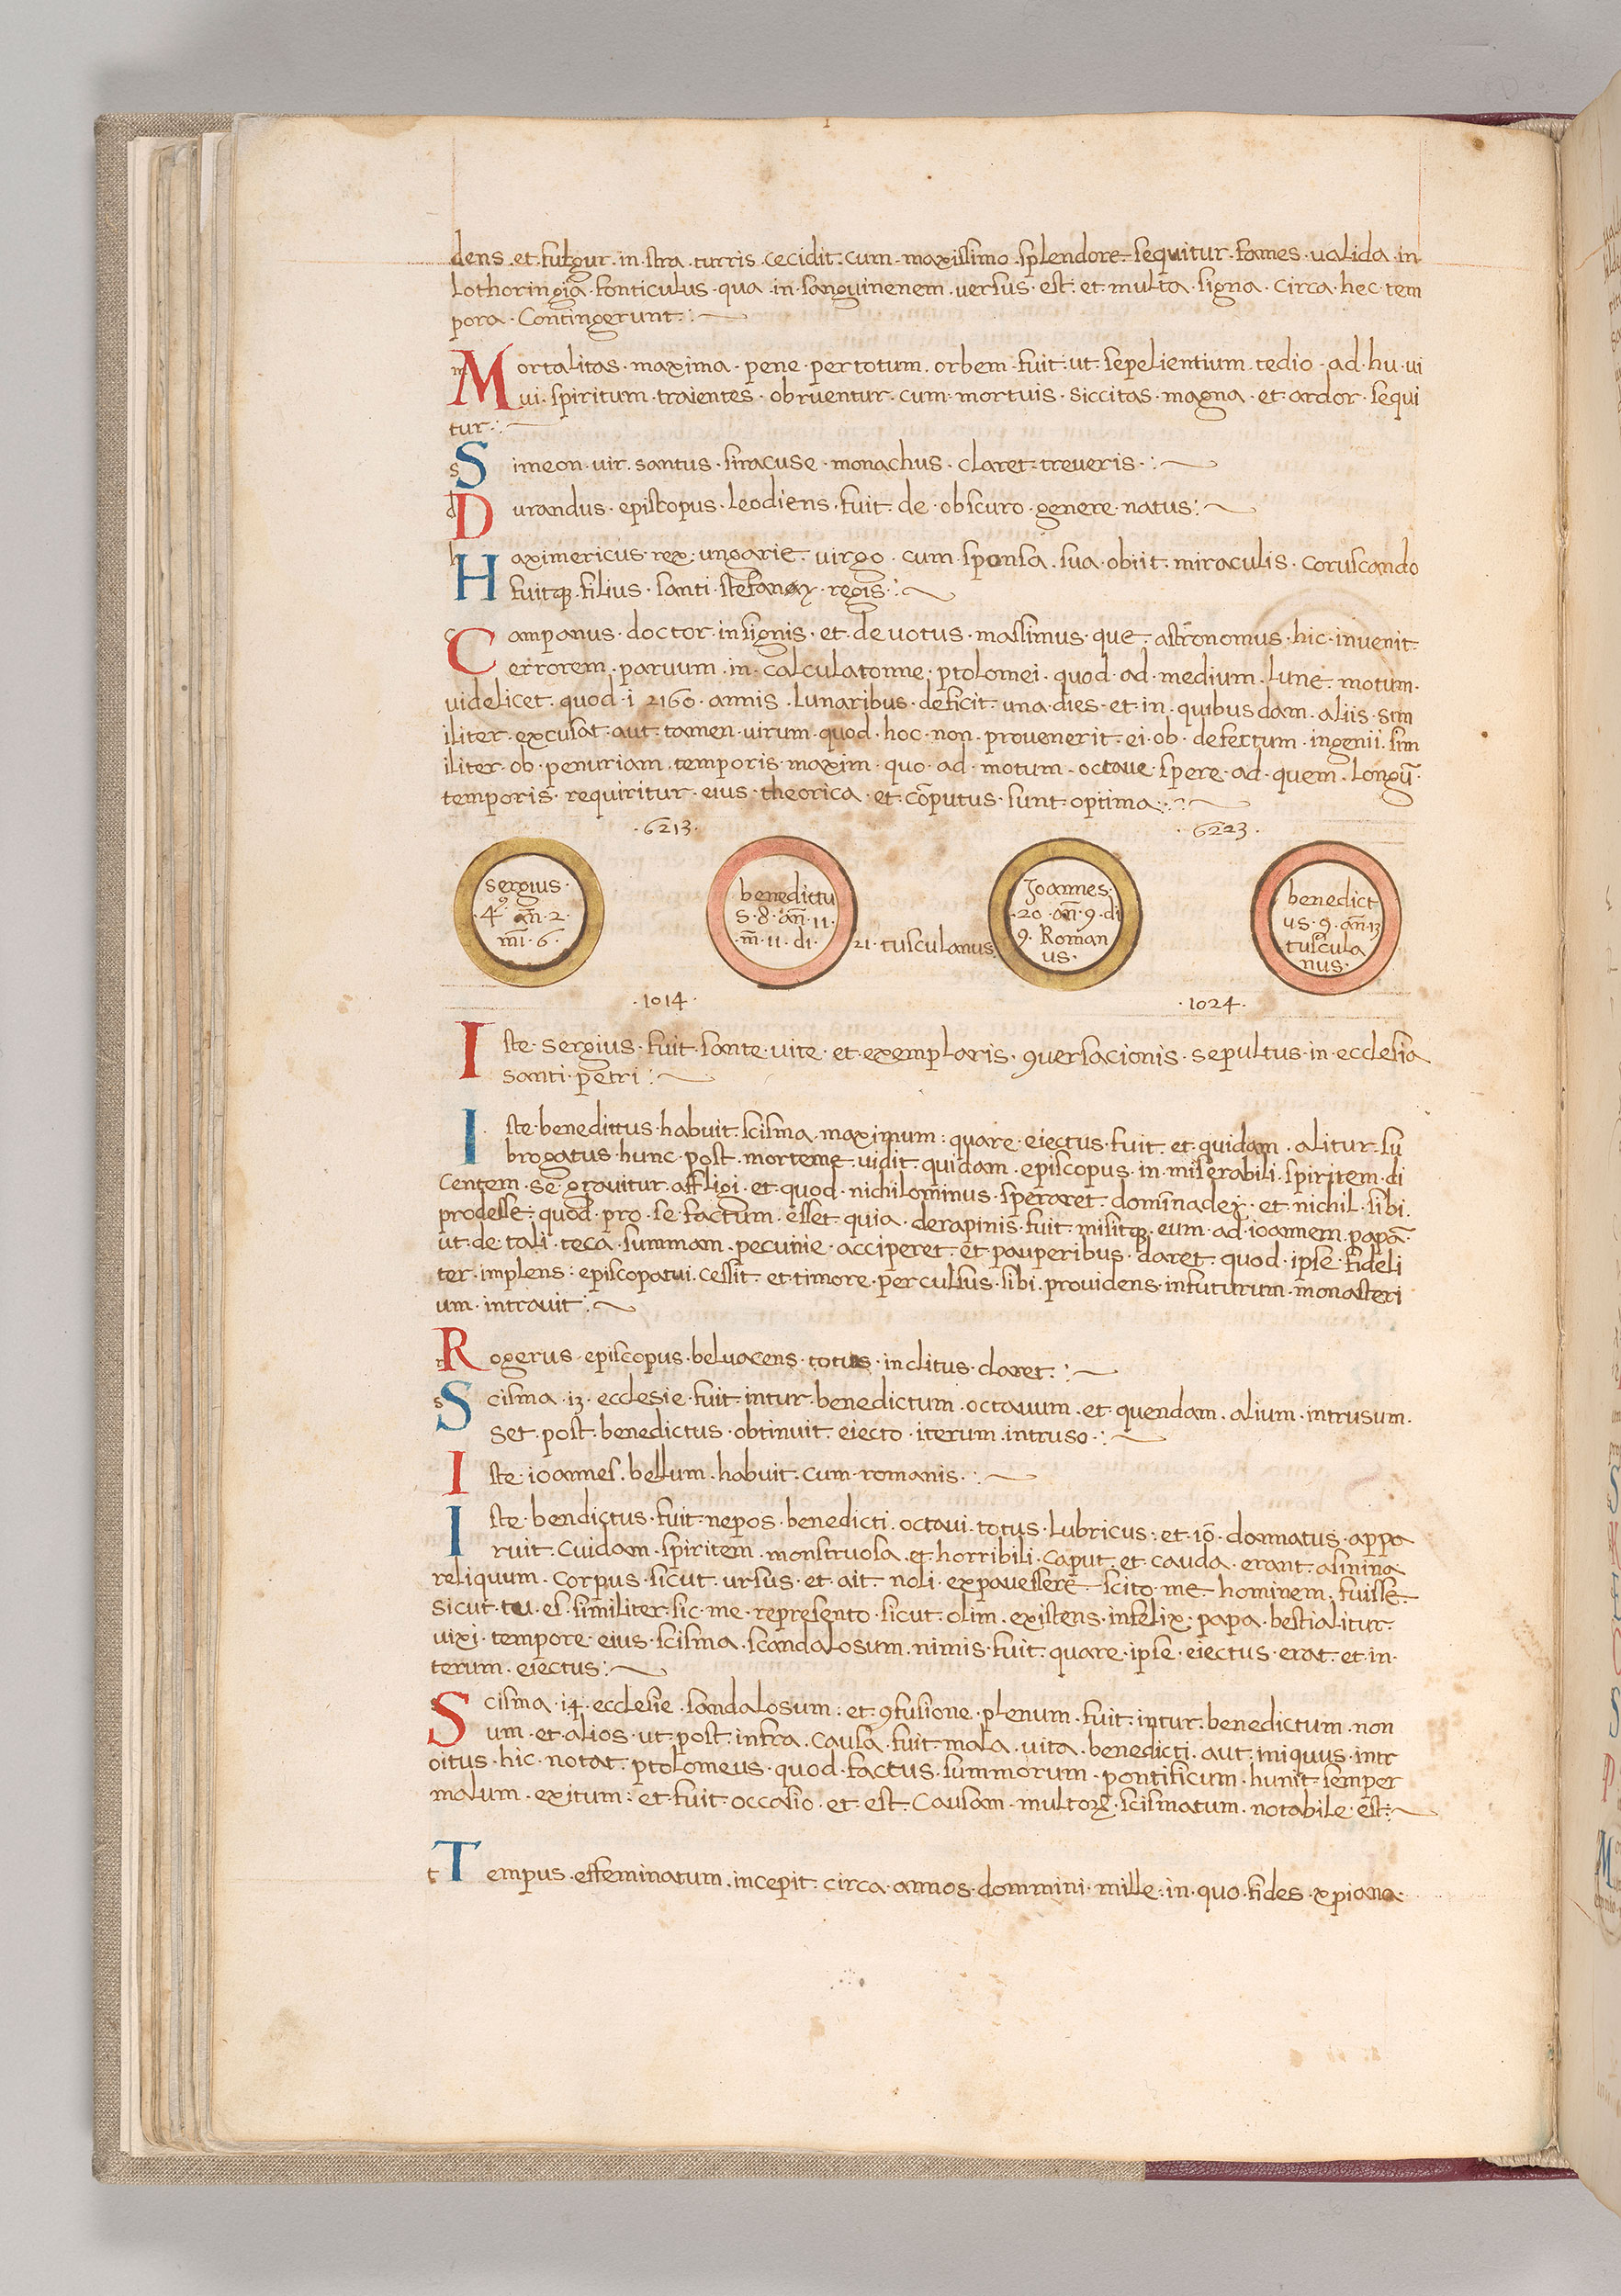 dens . et . fulgur . in . stra . turris . cecidit . cum . maxissimo . splendore . sequitur . fames . ualida . in
Lothoringia . fonticulus . qua . in . sanguinenem . uersus . est . et . multa . signa . circa . hec . tem
pora . Contingerunt :
m Mortalitas . maxima . pene . per totum . orbem . fuit . ut . sepelientium . tedio . ad . hu . ui
ui . spiritum . traientes . obruentur . cum . mortuis . siccitas . magna . et . ardor . sequi
tur :
s Simeon . uir . santus . siracuse . monachus . claret . treueris . :
d Durandus . episcopus . leodiens . fuit . de . obscuro . genere . natus :
h Haximericus . rex . ungarie . virgo . cum . sponsa . sua . obiit . miraculis . coruscando
fuitq3 . filius . santi . regis . :
c Campanus . doctor . insignis . et . deuotus . massimus . que . astronomus . hic . inuenit .
errorem . paruum . in . calculatonne . ptolomei . quod . ad . medium . lune . motum .
uidelicet . quod . i 2160 . annis . lunaribus . deficit . una . dies . et . in . quibusdam . aliis . sim
iliter . excusat . aut . tamen . uirum . quod . hoc . non . prouenerit . ei . ob . defectum . ingenii . sim
iliter . ob . penuriam . temporis . maxim . quo . ad . motum . octaue . spere . ad . quem . longū .
temporis . requiritur . eius . theorica . et . cōputus . sunt . optima :
. 6213 .
. 6223 .
sergius .
. 4⁹ . an̄ . 2 .
mı̄ . 6 .
benedittu
s . 8 . an̄ . 11 .
. m̄ . 11 . di .
21 . tusculanus .
Joannes .
. 20 . an̄ . 9 . di
9 . Roman
us .
benedict
us . 9 . an̄ . 13
tuscula
nus .
. 1014 .
. 1024 .
Iste . sergius . fuit . sante . uite . et . exemplaris . ꝯuersacionis . sepultus . in . ecclesia
santi . petri :
Iste . benedittus . habuit . scisma . maximum : quare . eiectus . fuit . et . quidam . alitur . su
brogatus . hunc . post . morteme . uidit . quidam . episcopus . in . miserabili . spiritem . di
centem . se . grauitur . affligi . et . quod . nichilominus . speraret . et . nichil . sibi .
prodesse . quod . pro . se . factum . esset . quia . derapinis . fuit . misitq3 . eum . ad . ioannem . papā .
ut . de . tali . teca . summam . pecunie . acciperet . et . pauperibus . daret . quod . ipse . fideli
ter . implens : episcopatui . cessit . et timore . perculsus . sibi . prouidens . infuturum . monasteri
um . intrauit :
r Rogerus . episcopus . beluacens . totus . inclitus . claret . :
s Scisma . 13 . ecclesie . fuit . intur . benedictum . octauum . et . quendam . alium . intrusum .
set . post . benedictus . obtinuit . eiecto . iterum . intruso . :
Iste . ioannes . bellum . habuit . cum . romanis . :
Iste . bendictus . fuit . nepos . benedicti . octaui . totus . lubricus . et . iō . damnatus . appa
ruit . cuidam . spiritem . monstruosa . et . horribili . caput . et . cauda . erant . asinina
reliquum . corpus . sicut . ursus . et . ait . noli . expauesserē . scito . me . hominem . fuisse .
sicut . tu . es . similiter . sic . me . represento . sicut . olim . existens . infelix . papa . bestialitur .
uixi . tempore . eius . scisma . scandalosum . nimis . fuit . quare . ipse . eiectus . erat . et in .
terum . eiectus :
Scisma . 14 . ecclesie . sandalosum : et . ꝯfusione . plenum . fuit . intur . benedictum . non
um . et . alios . ut . post . infra . causa . fuit . mala . uita . benedicti . aut . iniquus . intr
oitus . hic . notat . ptolomeus . quod . factus . summorum . pontificum . hunit . semper
malum . exitum : et . fuit . occasio . et . est . causam . multoꝝ . scismatum . notabile . est :
t Tempus . effeminatum . incepit . circa . annos . dommini . mille . in . quo . fides . xpiana .